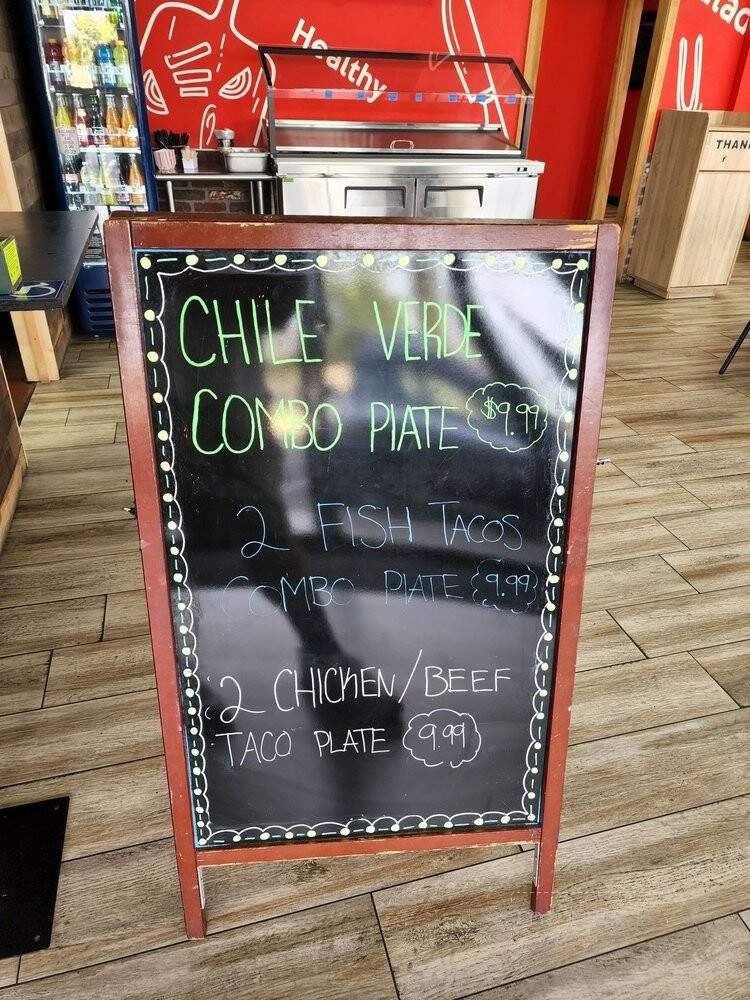 Healthy
THAN
CHILE VERDE
COMBO PLATE $9.99
2 FISH TACOS
COMBO PLATE 9.99
2 CHICKEN/BEEF
TACO PLATE 9.99